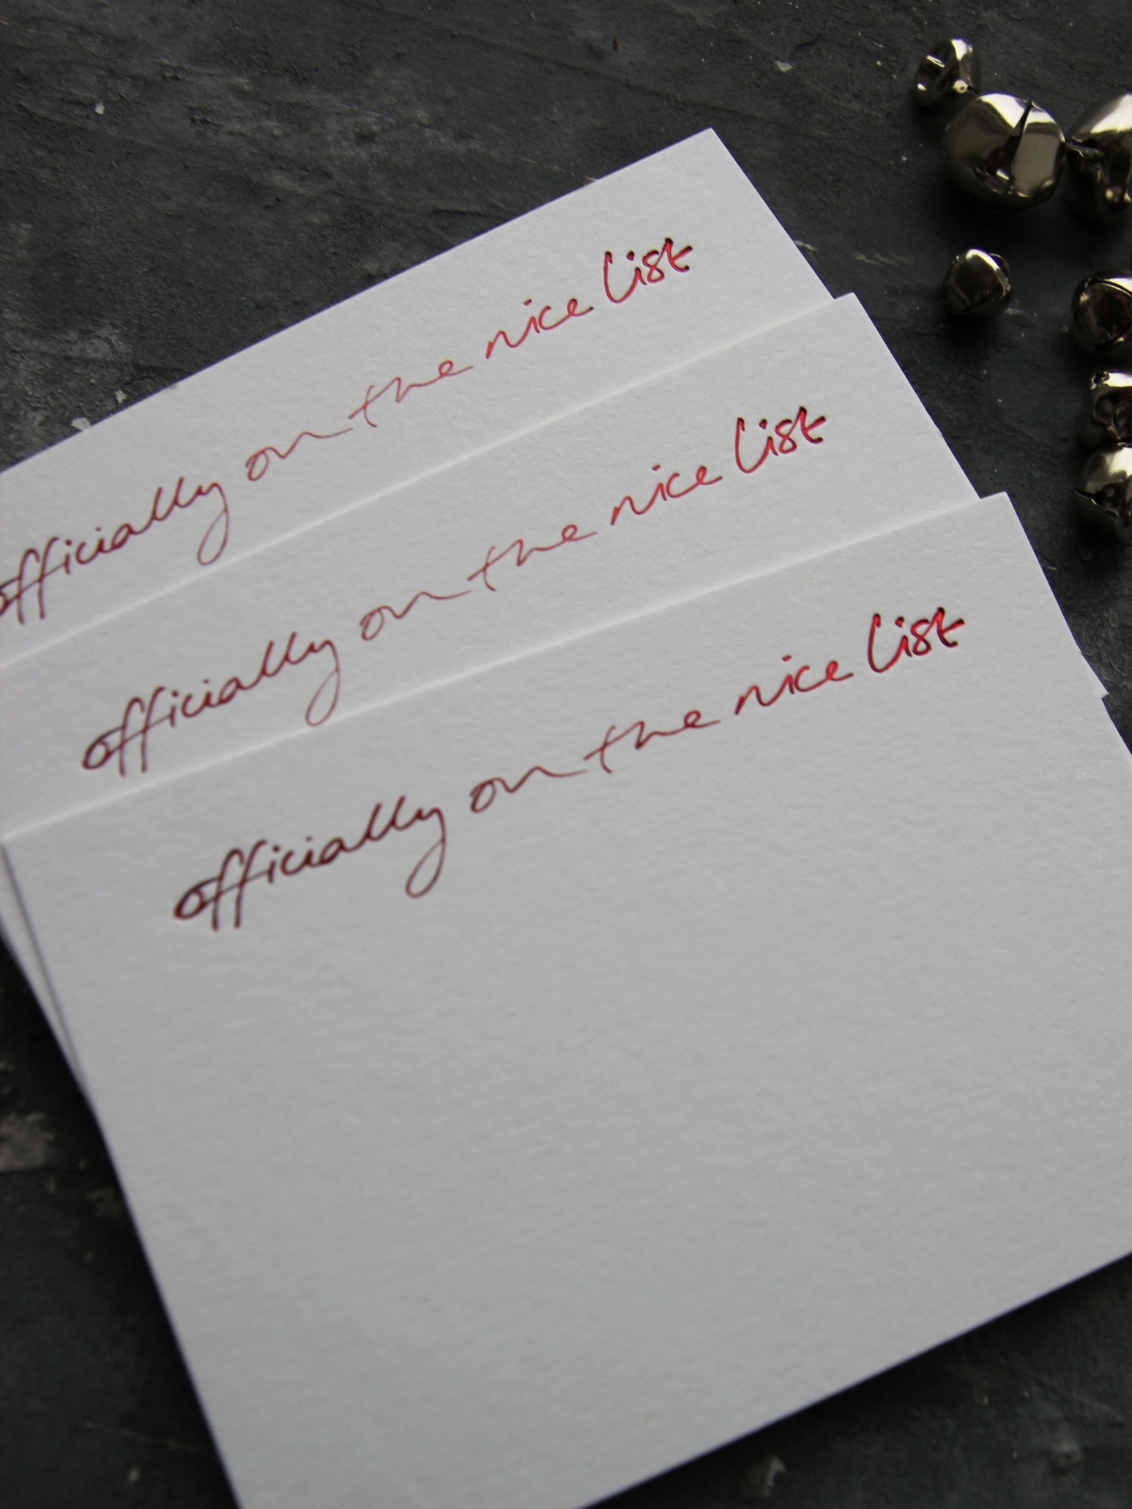 officially on the nice list
officially on the nice list
officially on the nice list